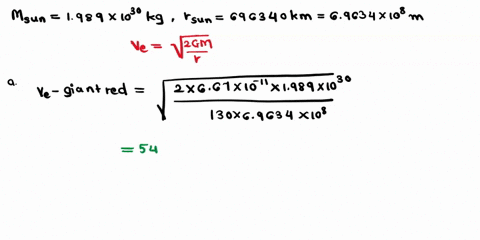 Msun = 1.989 × 10^30 kg, rsun = 696340 km = 6.9634 × 10^8 m
ve = √(2GM/r)
a. ve - giant red = √(2 × 6.67 × 10^-11 × 1.989 × 10^30 / 130 × 6.9634 × 10^8)
= 54